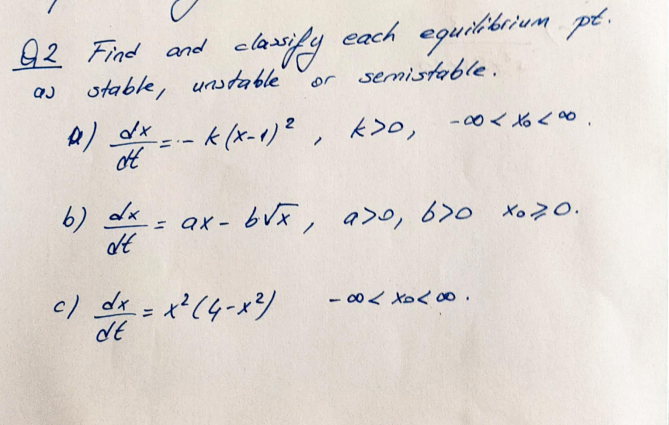 Q2 Find and classify each equilibrium pt.
as stable, unstable or semistable.
a) dx/dt = - k(x-1)², k>0, -∞ < x₀ < ∞.
b) dx/dt = ax - b√x, a>0, b>0 x₀ ≥ 0.
c) dx/dt = x²(4-x²) -∞ < x₀ < ∞.